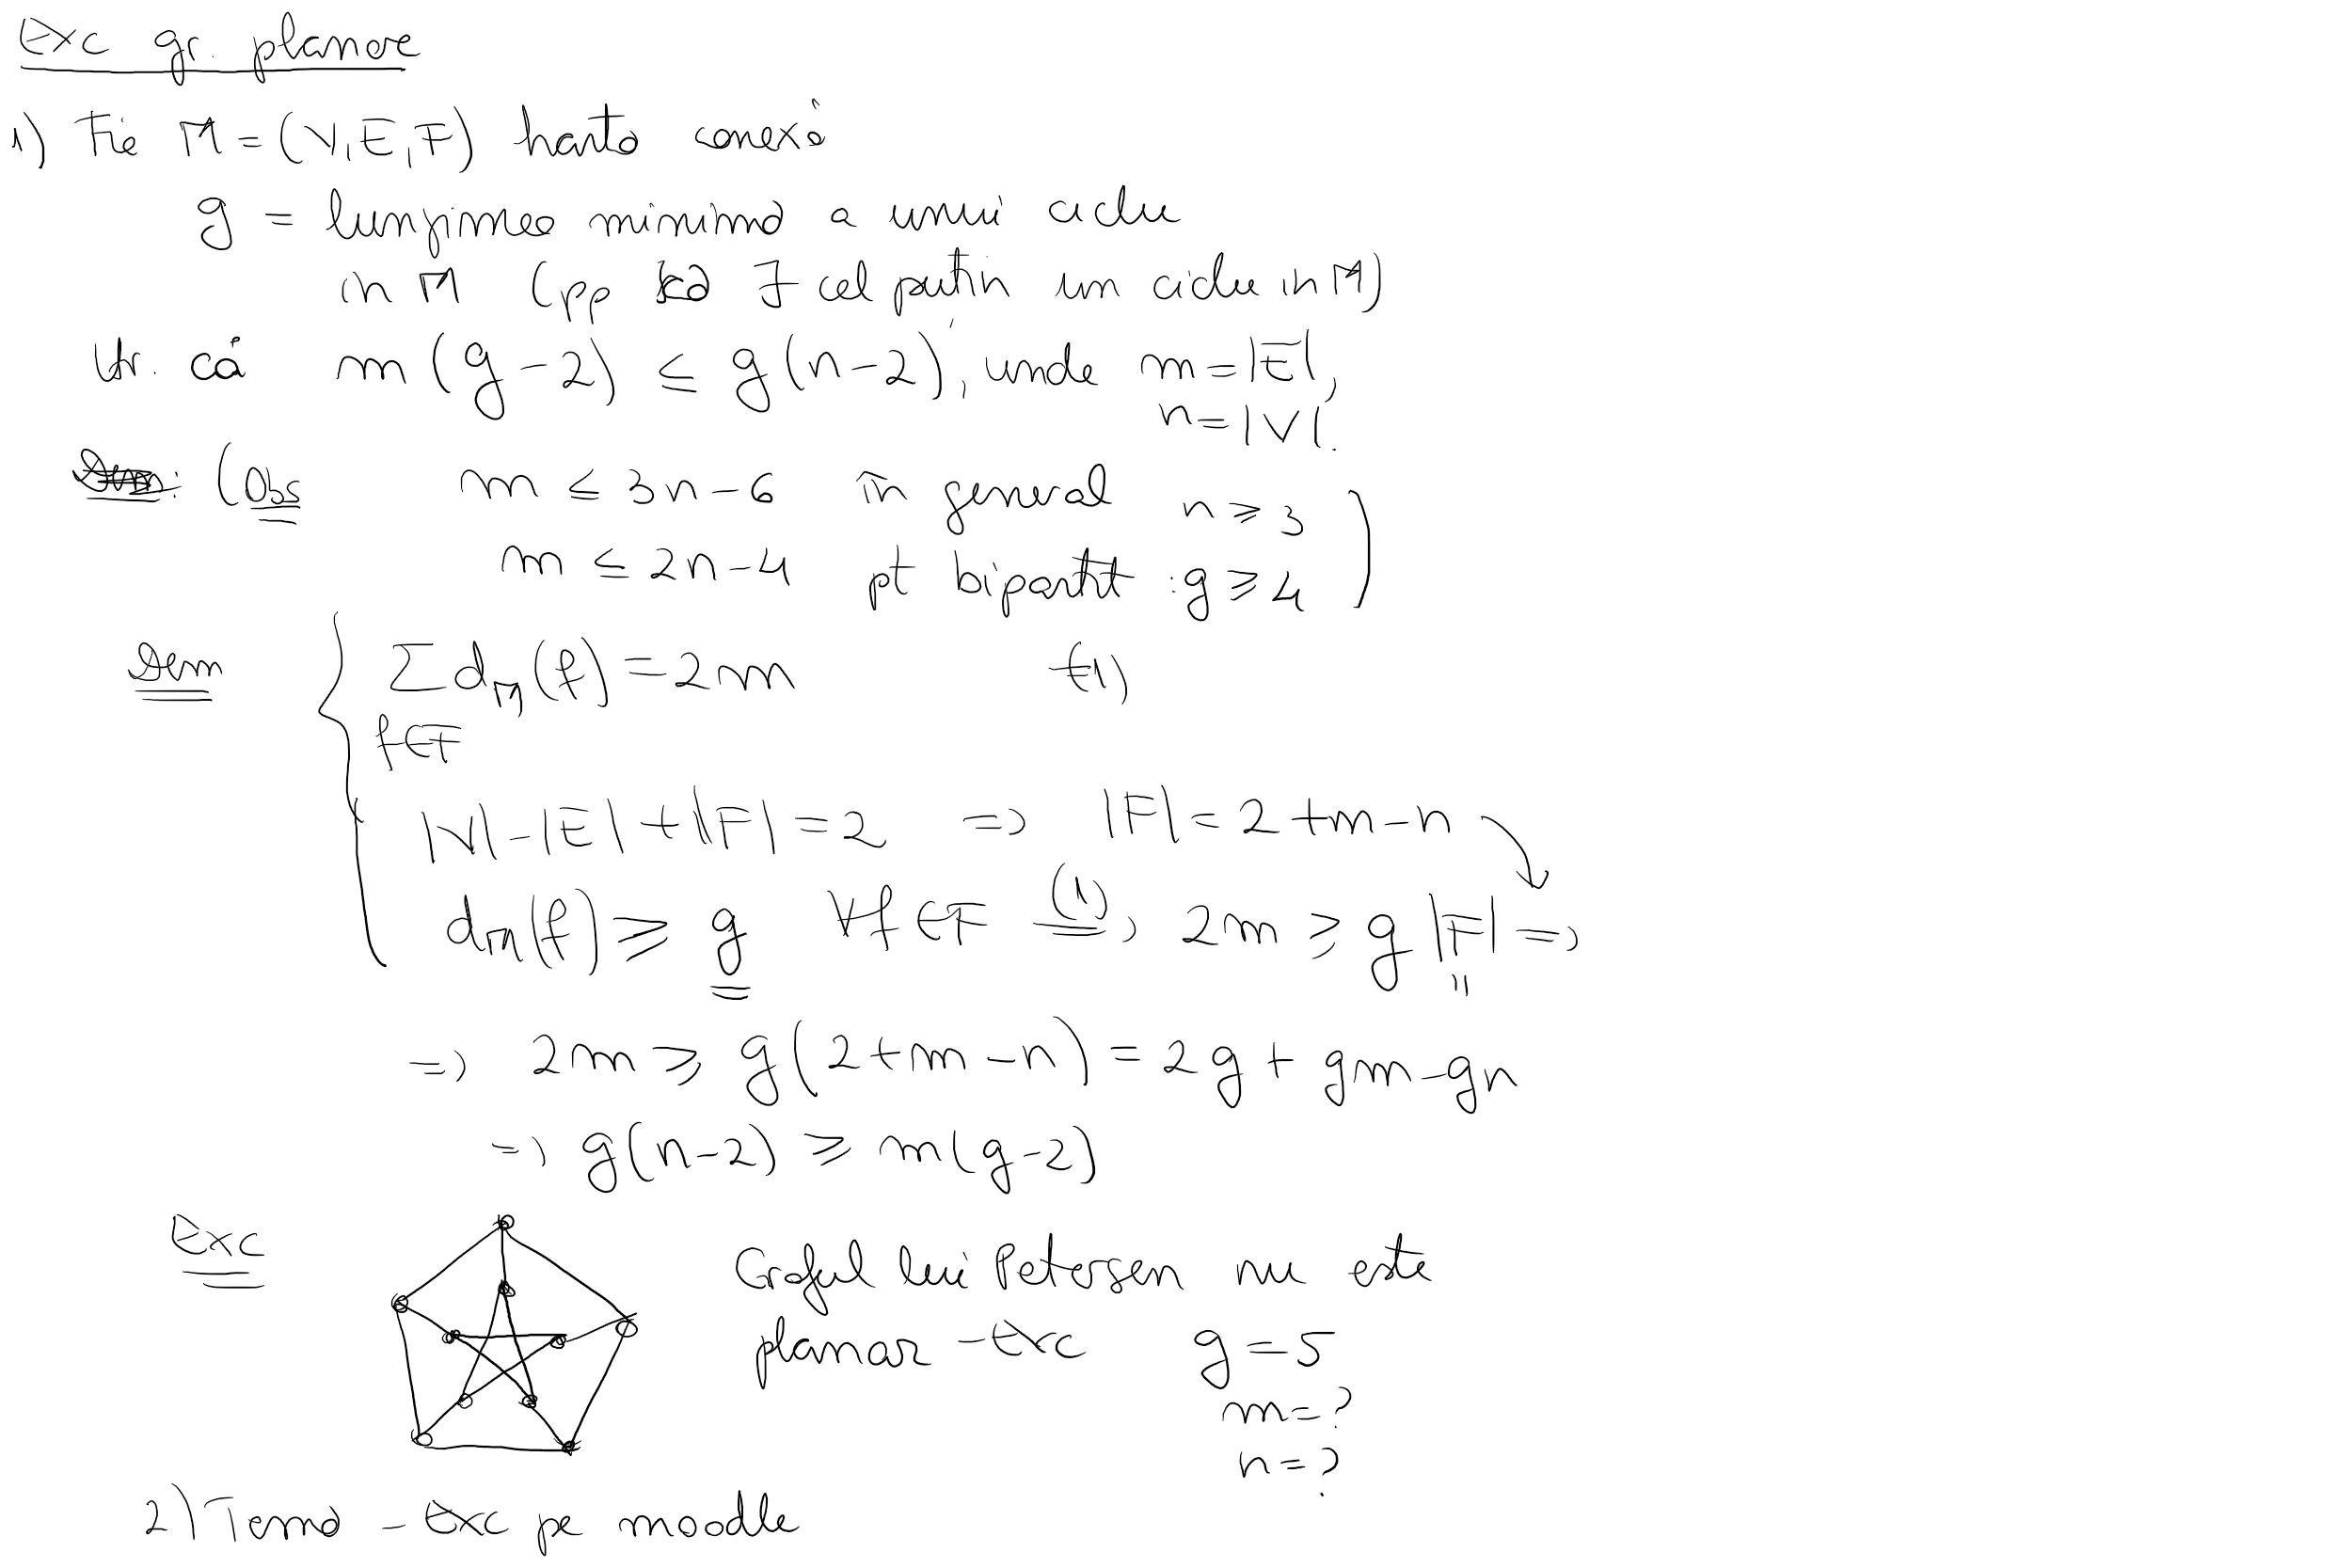 Exc gr. planare
1) Fie M = (V, E, F) hartă conexă
g = lungimea minimă a unui ciclu
in M (pp că ∃ cel puțin un ciclu in M)
că m(g-2) ≤ g(n-2), unde m = |E|,
n = |V|.
Dem: (Obs m ≤ 3n-6 în general n ≥ 3
m ≤ 2n-4 pt bipartit : g ≥ 4)
Dem ∑ d_M(f) = 2m (1)
f∈F
|V| - |E| + |F| = 2 => |F| = 2+m-n
d_M(f) ≥ g ∀f∈F (1)=> 2m ≥ g|F| =>
=> 2m ≥ g(2+m-n) = 2g + gm - gn
=> g(n-2) ≥ m(g-2)
Exc Graful lui Petersen nu este
planar - Exc g = 5
m = ?
n = ?
2) Tema - Exc pe moodle